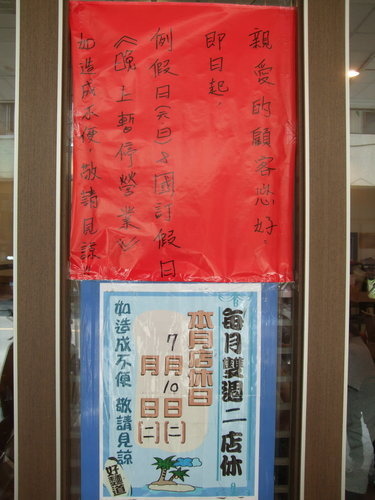 親愛的顧客您好.
即日起.
例假日(六日)&國訂假日
《晚上暫停營業》
如造成不便.敬請見諒!!
每月雙週二店休
本月店休日
7月10日(二)
月 日(二)
如造成不便 敬請見諒
好麵道